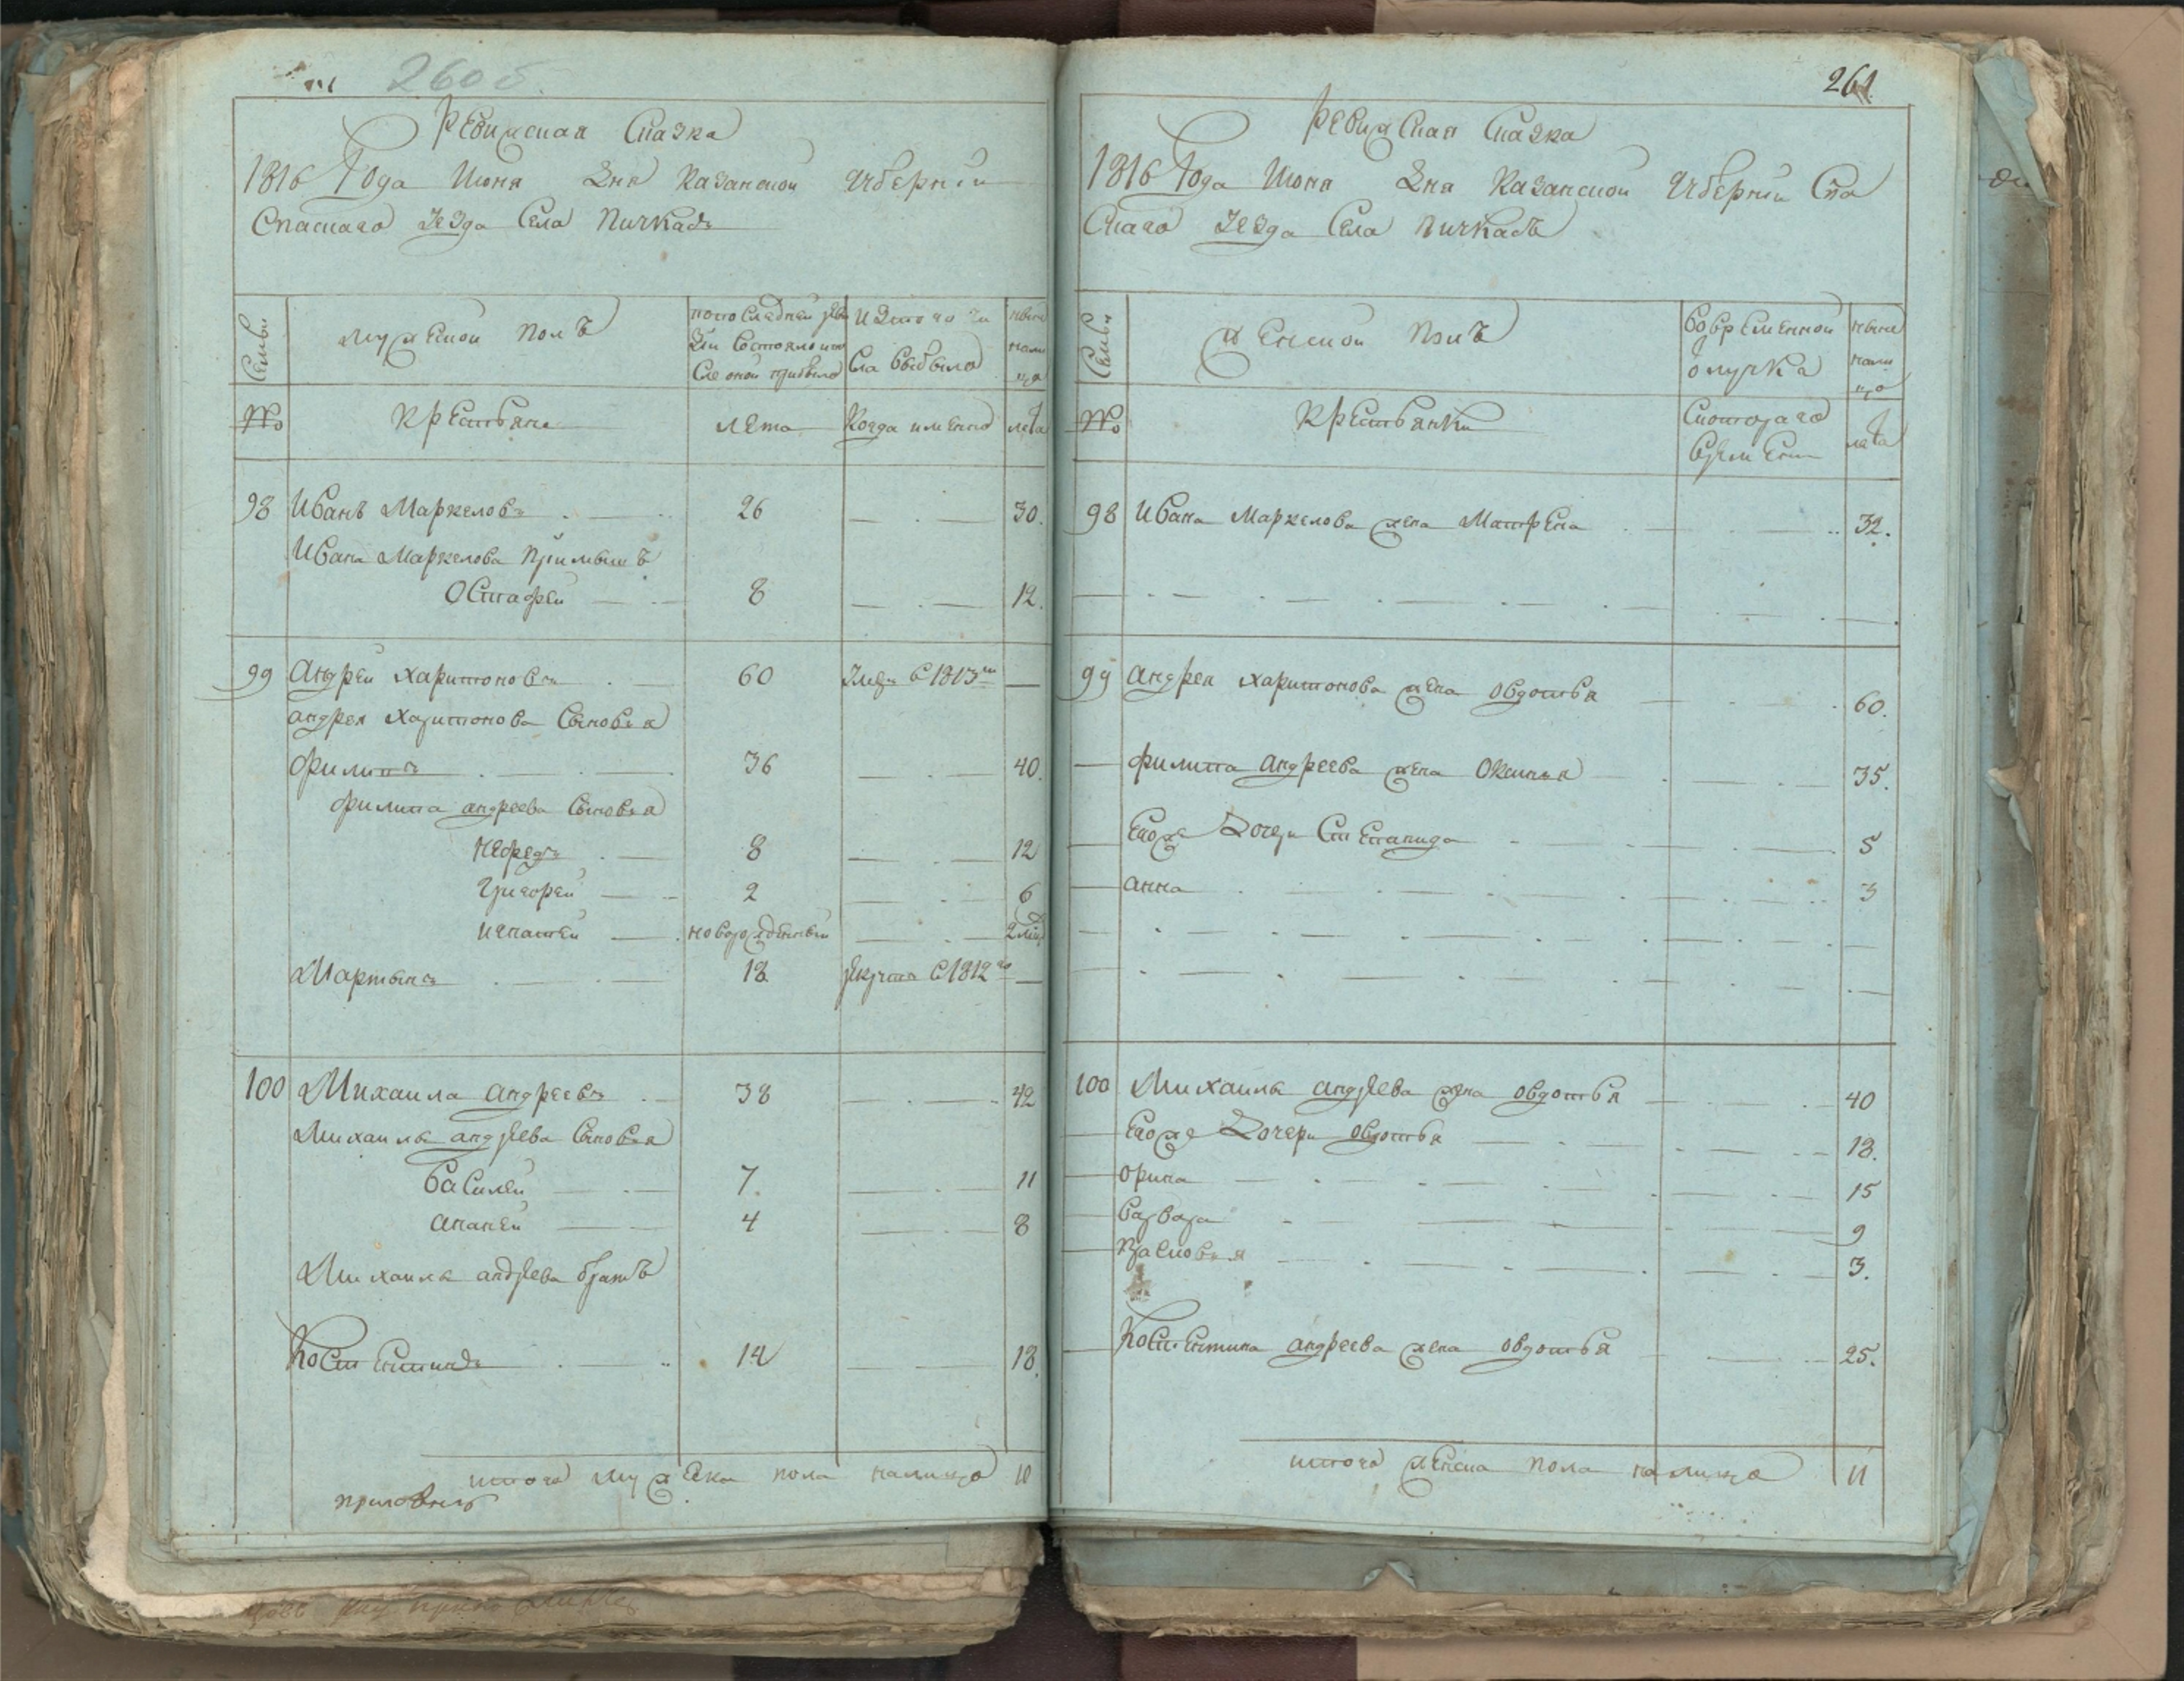 260 об.
Ревизская Сказка
1816 Года Июня Дня Казанской Губернiи
Спаскаго уезда Села Пичкасъ
Семьи
мужеской полъ
по последней реви
зiи состояло и по
сле оной прибыло
Изтого чи
сла выбыло
ныне
нали
цо
№
крестьяне
лета
Когда имянно
лета
98 Иванъ Маркеловъ 26 30.
Ивана Маркелова Прiимышъ
Остафей 8 12.
99 Андрей Харитоновъ 60 Умре с 1813м
андрея Харитонова Сыновья
Филипъ 36 40.
Филипа андреева Сыновья
Нефедъ 8 12
Григорей 2 6
Игнатей новорожденный 2 мц
Мартынъ 18 рекрутъ с 1812го
100 Михаила андреевъ 38 42
Михаилы андреева Сыновья
Василей 7. 11
ананей 4 8
Михаилы андреева братъ
Костентинъ 14 18.
итого мужеска пола налицо 10
261
Ревизская Сказка
1816 Года Июня Дня Казанской Губернiи Спа
скаго уезда Села Пичкасъ
Семьи
женской полъ
Вовременной
отлучке
ныне
нали
цо
№
крестьянки
Скотораго
времени
лета
98 Ивана Маркелова жена Матрена 32.
99 андрея харитонова жена овдотья 60.
филипа андреева жена Оксинья 35.
Егоже Дочери Степанида 5
анна 3
100 Михаилы андреева жена овдотья 40
Егоже Дочери овдотья 18.
орина 15
варвара 9
Прасковья 3.
Костентина андреева жена овдотья 25.
итого женска пола налицо 11